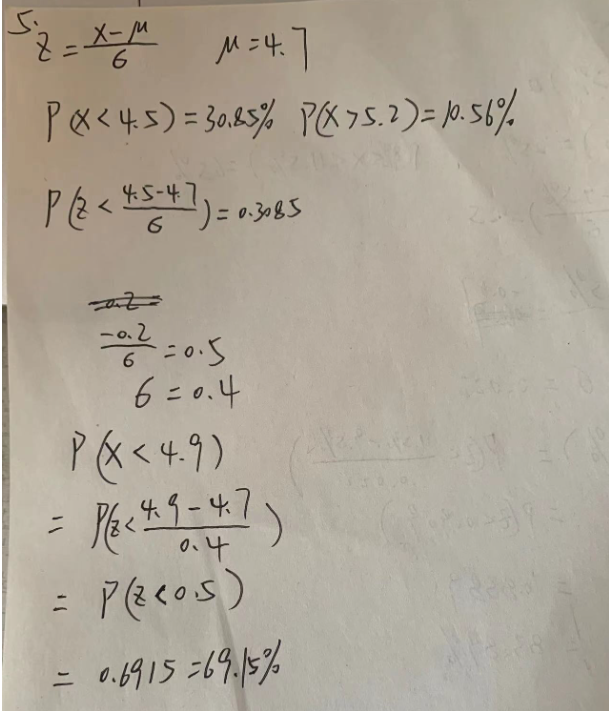 5. z = (x-μ)/6   μ = 4.7
P(x < 4.5) = 30.85%  P(x > 5.2) = 10.56%
P(z < (4.5-4.7)/6) = 0.3085
-0.2/6 = 0.5
6 = 0.4
P(x < 4.9)
= P(z < (4.9-4.7)/0.4)
= P(z < 0.5)
= 0.6915 = 69.15%